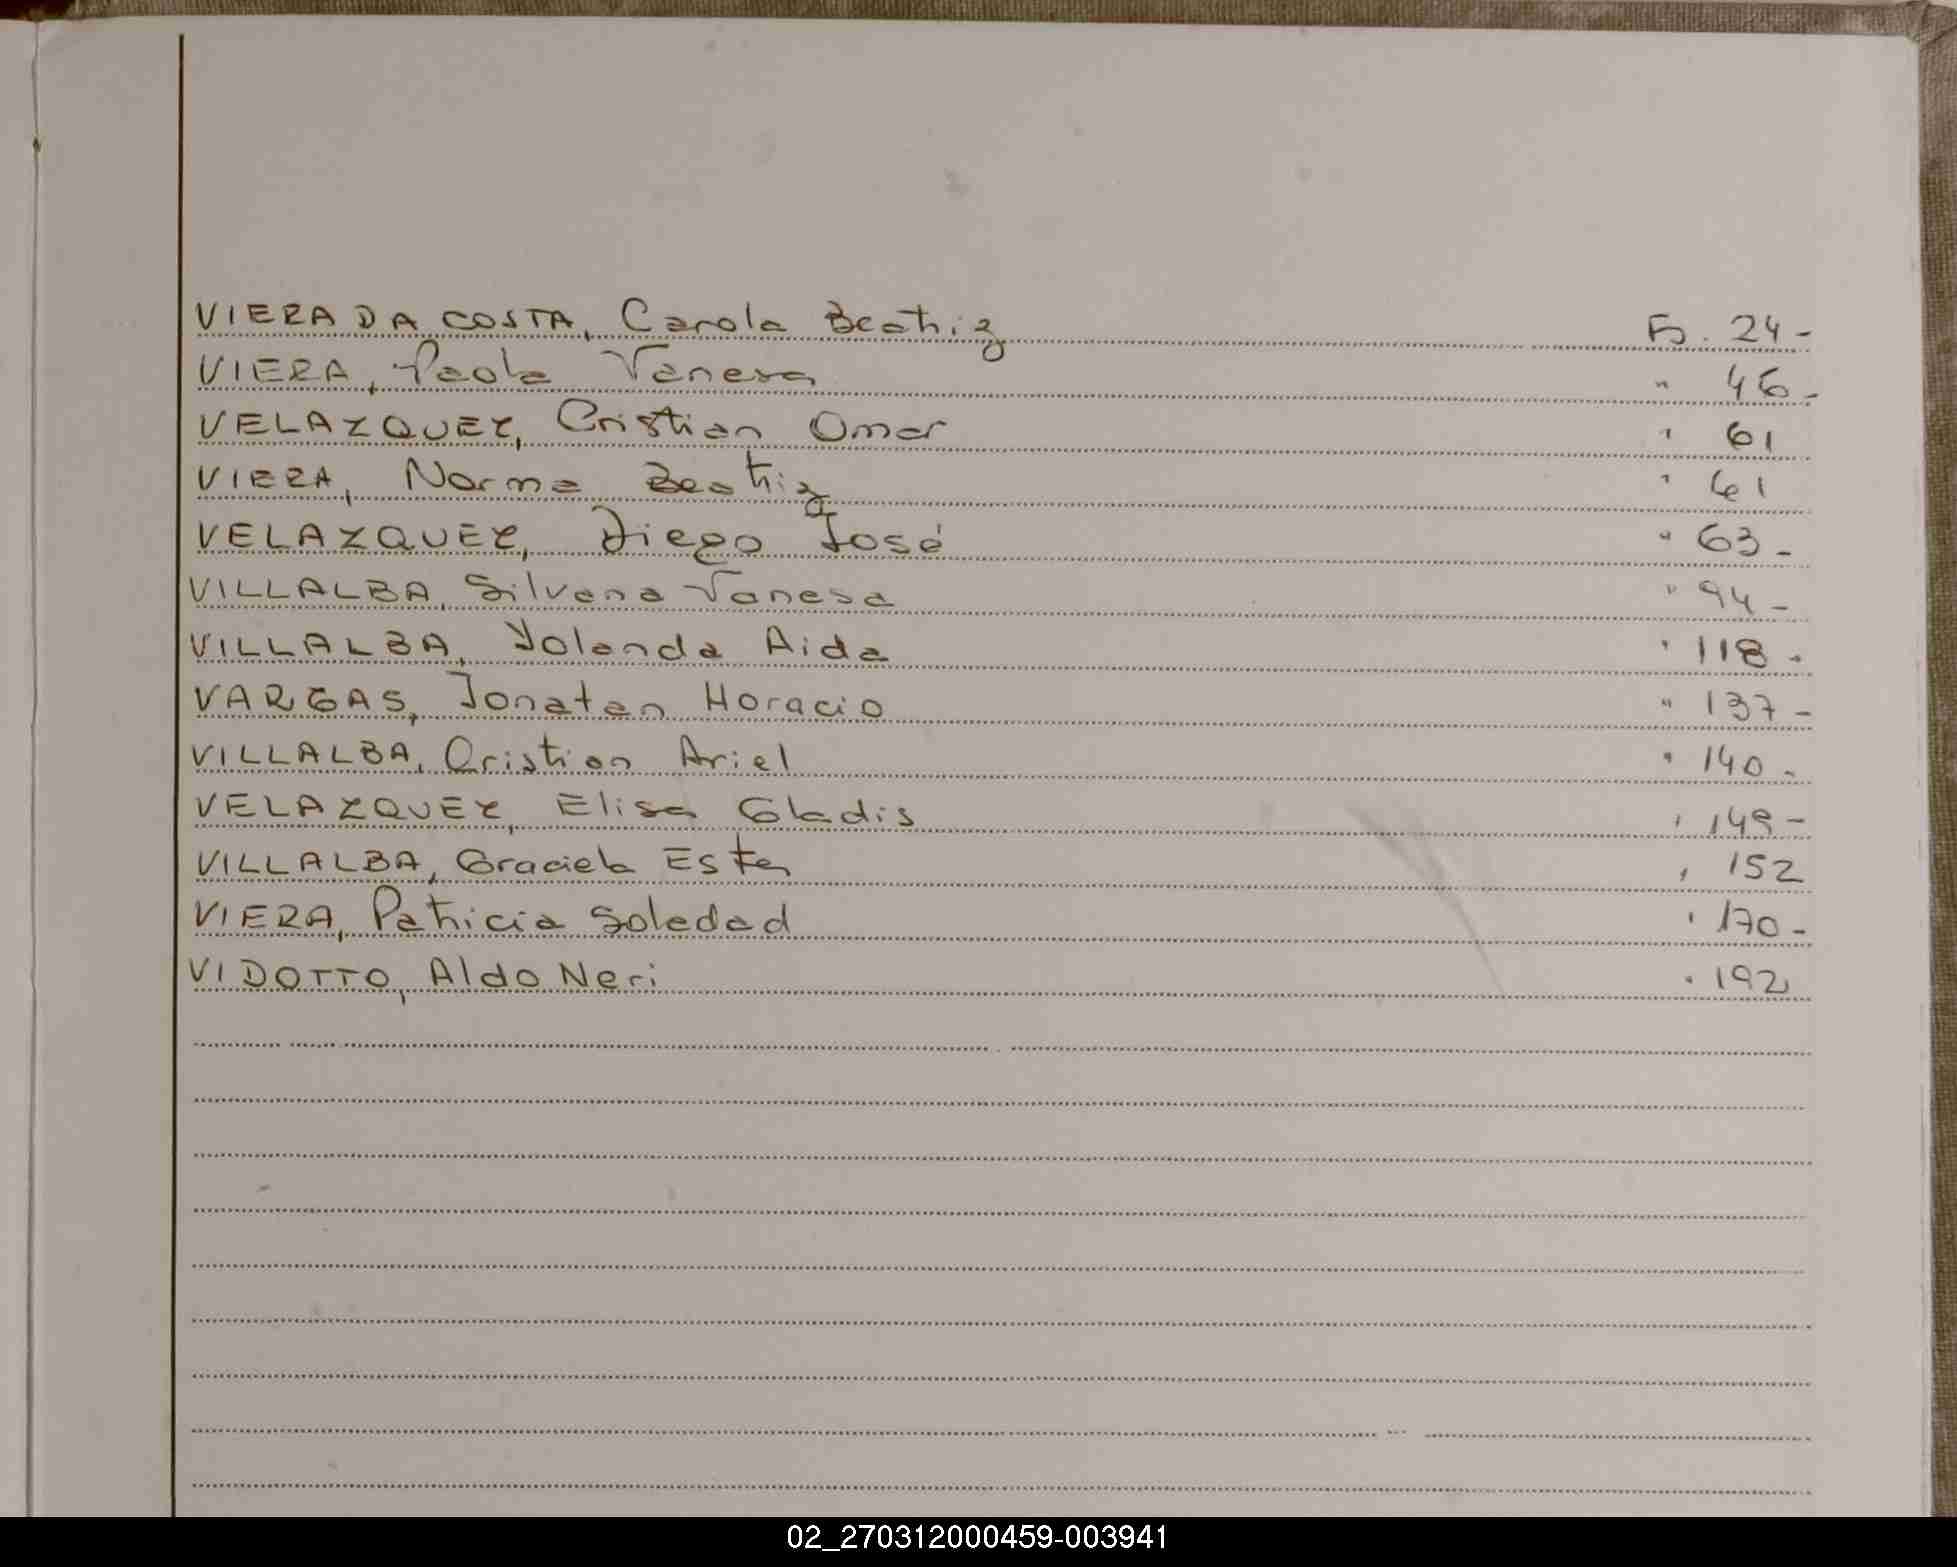 VIERA DA COSTA, Carola Beatriz Fs. 24-
VIERA, Paola Vanesa " 46-
VELAZQUEZ, Cristian Omar " 61
VIERA, Norma Beatriz " 61
VELAZQUEZ, Diego José " 63-
VILLALBA, Silvana Vanesa " 94-
VILLALBA, Yolanda Aida " 118-
VARGAS, Jonatan Horacio " 137-
VILLALBA, Cristian Ariel " 140-
VELAZQUEZ, Elisa Gladis " 149-
VILLALBA, Graciela Ester " 152
VIERA, Patricia Soledad " 170-
VIDOTTO, Aldo Neri " 192
02_270312000459-003941